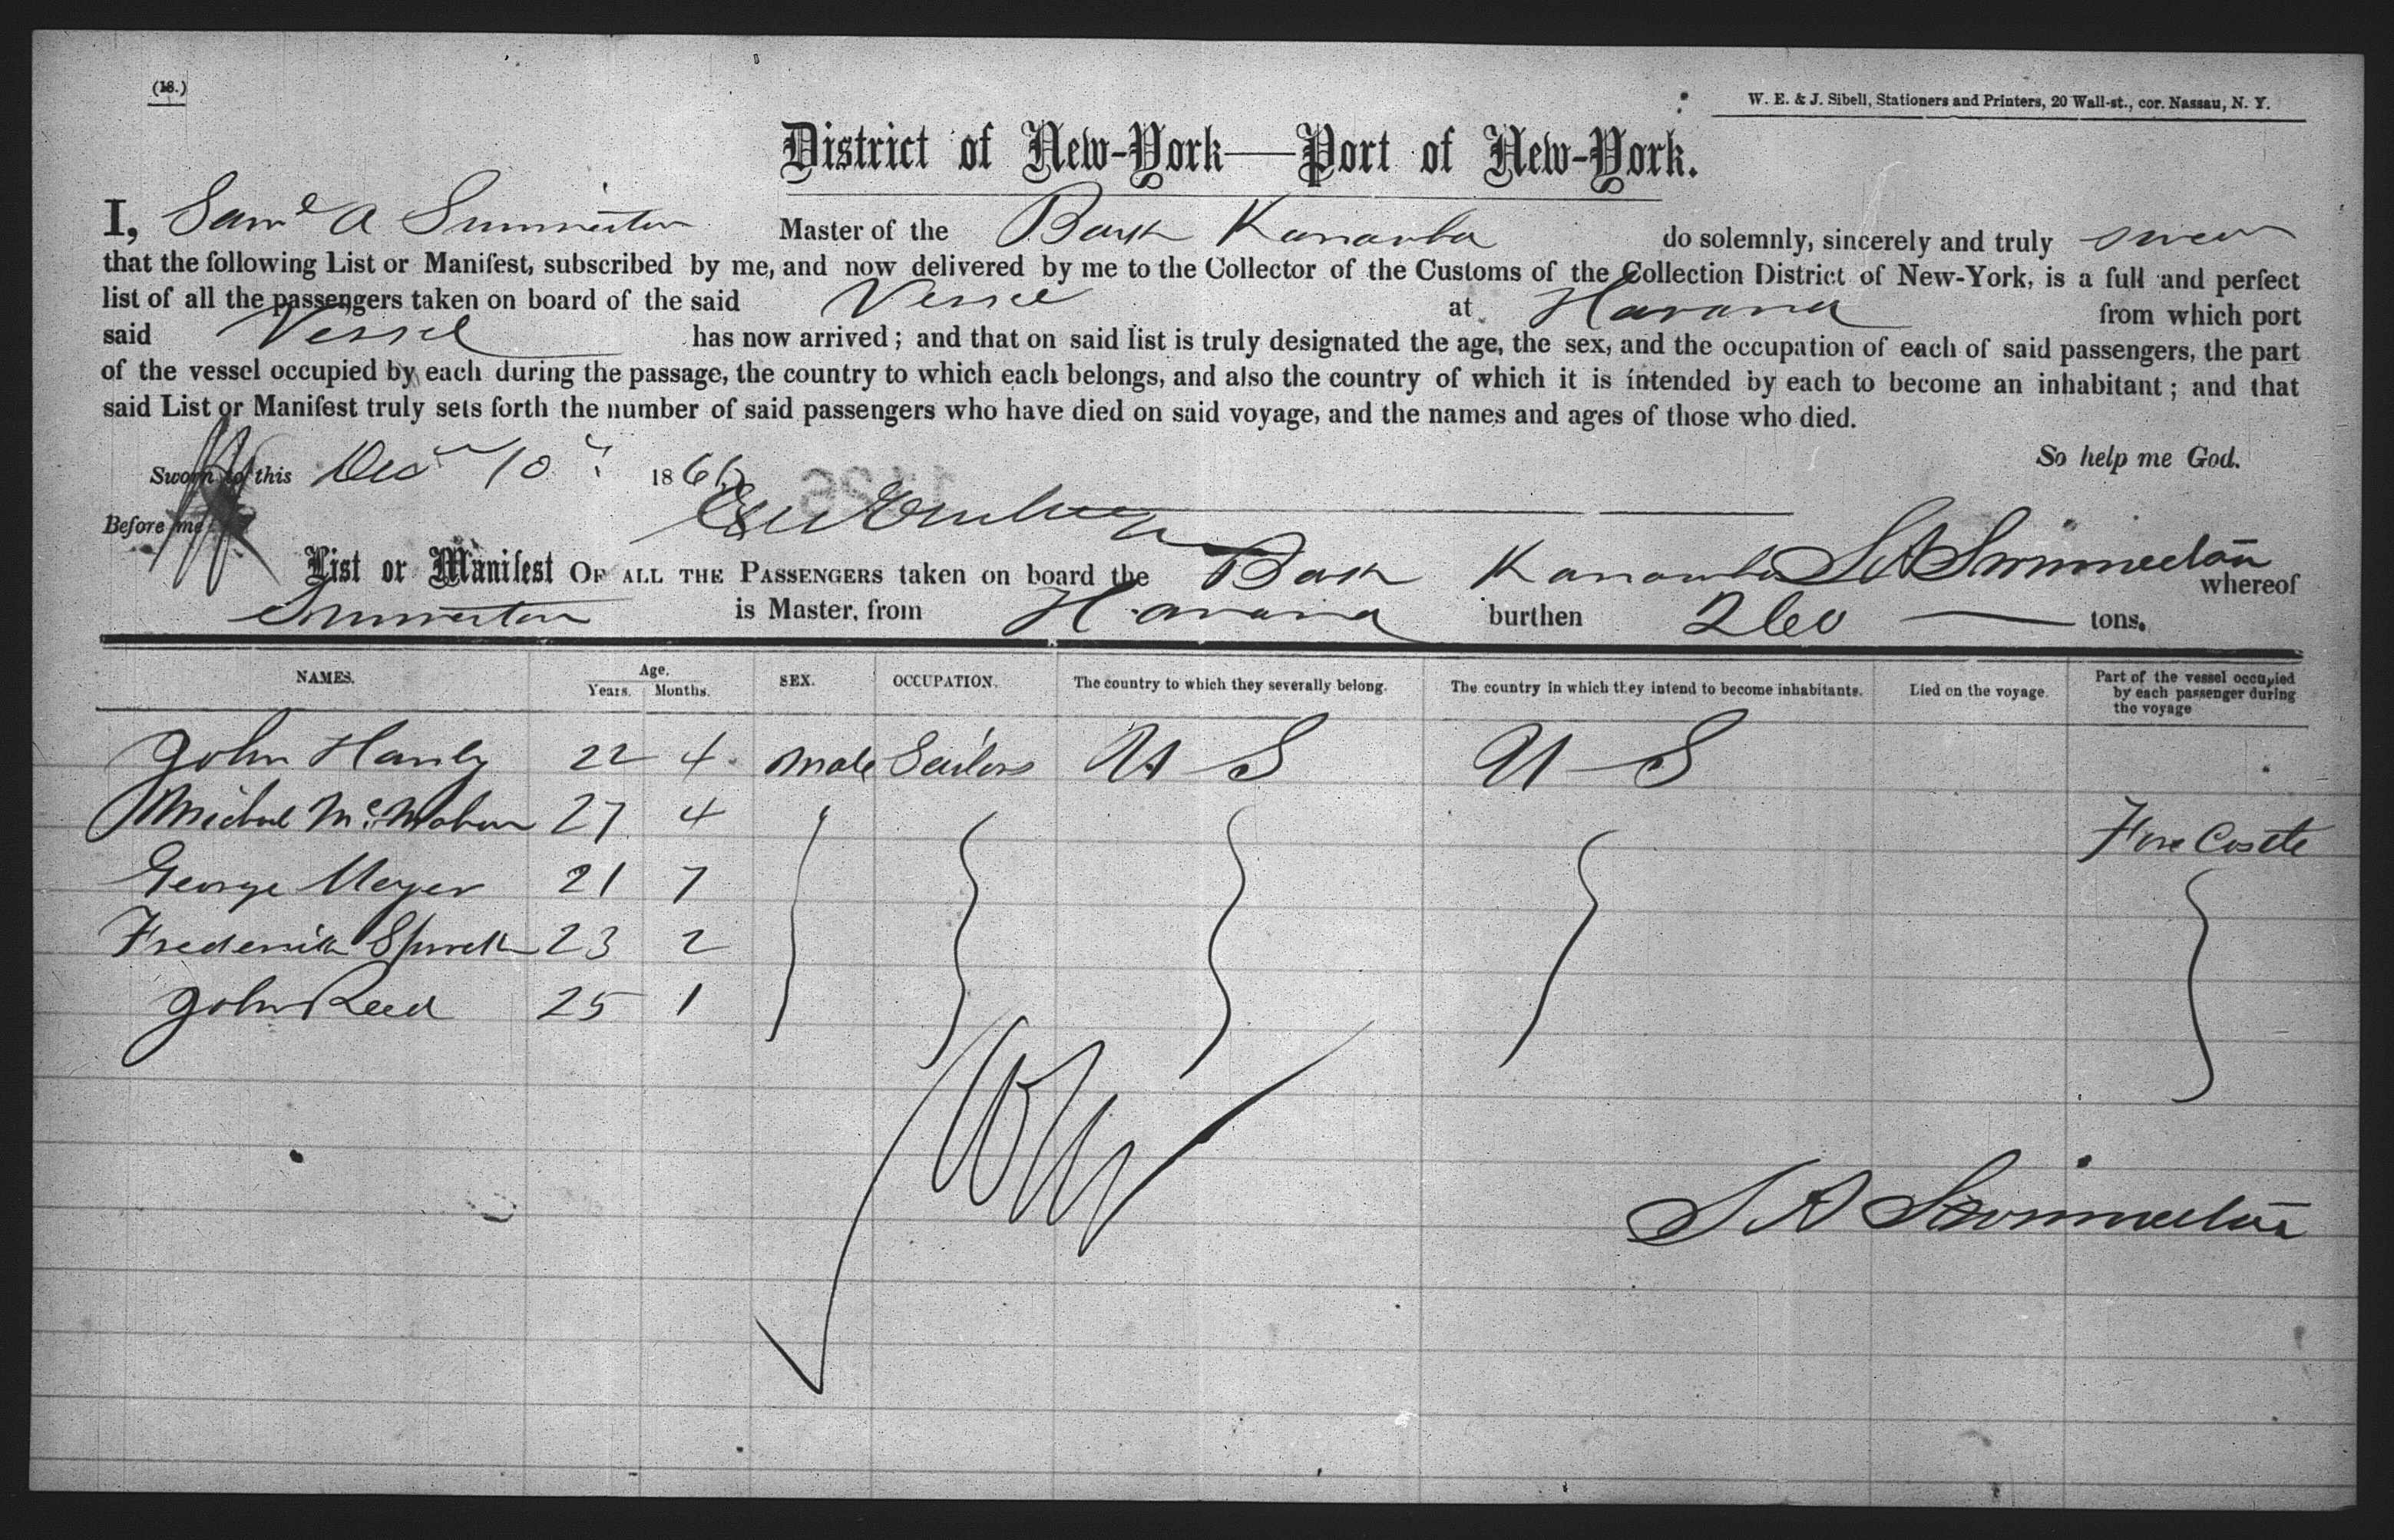 (18.)
W. E. & J. Sibell, Stationers and Printers, 20 Wall-st., cor. Nassau, N. Y.
District of New-York—Port of New-York.
I, Saml A Master of the Bark do solemnly, sincerely and truly swear
that the following List or Manifest, subscribed by me, and now delivered by me to the Collector of the Customs of the Collection District of New-York, is a full and perfect
list of all the passengers taken on board of the said Vessel at Havana from which port
said Vessel has now arrived; and that on said list is truly designated the age, the sex, and the occupation of each of said passengers, the part
of the vessel occupied by each during the passage, the country to which each belongs, and also the country of which it is intended by each to become an inhabitant; and that
said List or Manifest truly sets forth the number of said passengers who have died on said voyage, and the names and ages of those who died.
So help me God.
Sworn to this Decr 10th 1866
Before me
List or Manifest OF ALL THE PASSENGERS taken on board the Bark whereof
is Master, from Havana burthen 260 — tons.
NAMES. Age. Years. Months. SEX. OCCUPATION. The country to which they severally belong. The country in which they intend to become inhabitants. Died on the voyage. Part of the vessel occupied by each passenger during the voyage
John Hanly 22 4 Male Sailors U S U S
Michael McMahon 27 4 Fore Castle
George Meyer 21 7
Frederick 23 2
John Reed 25 1
S A